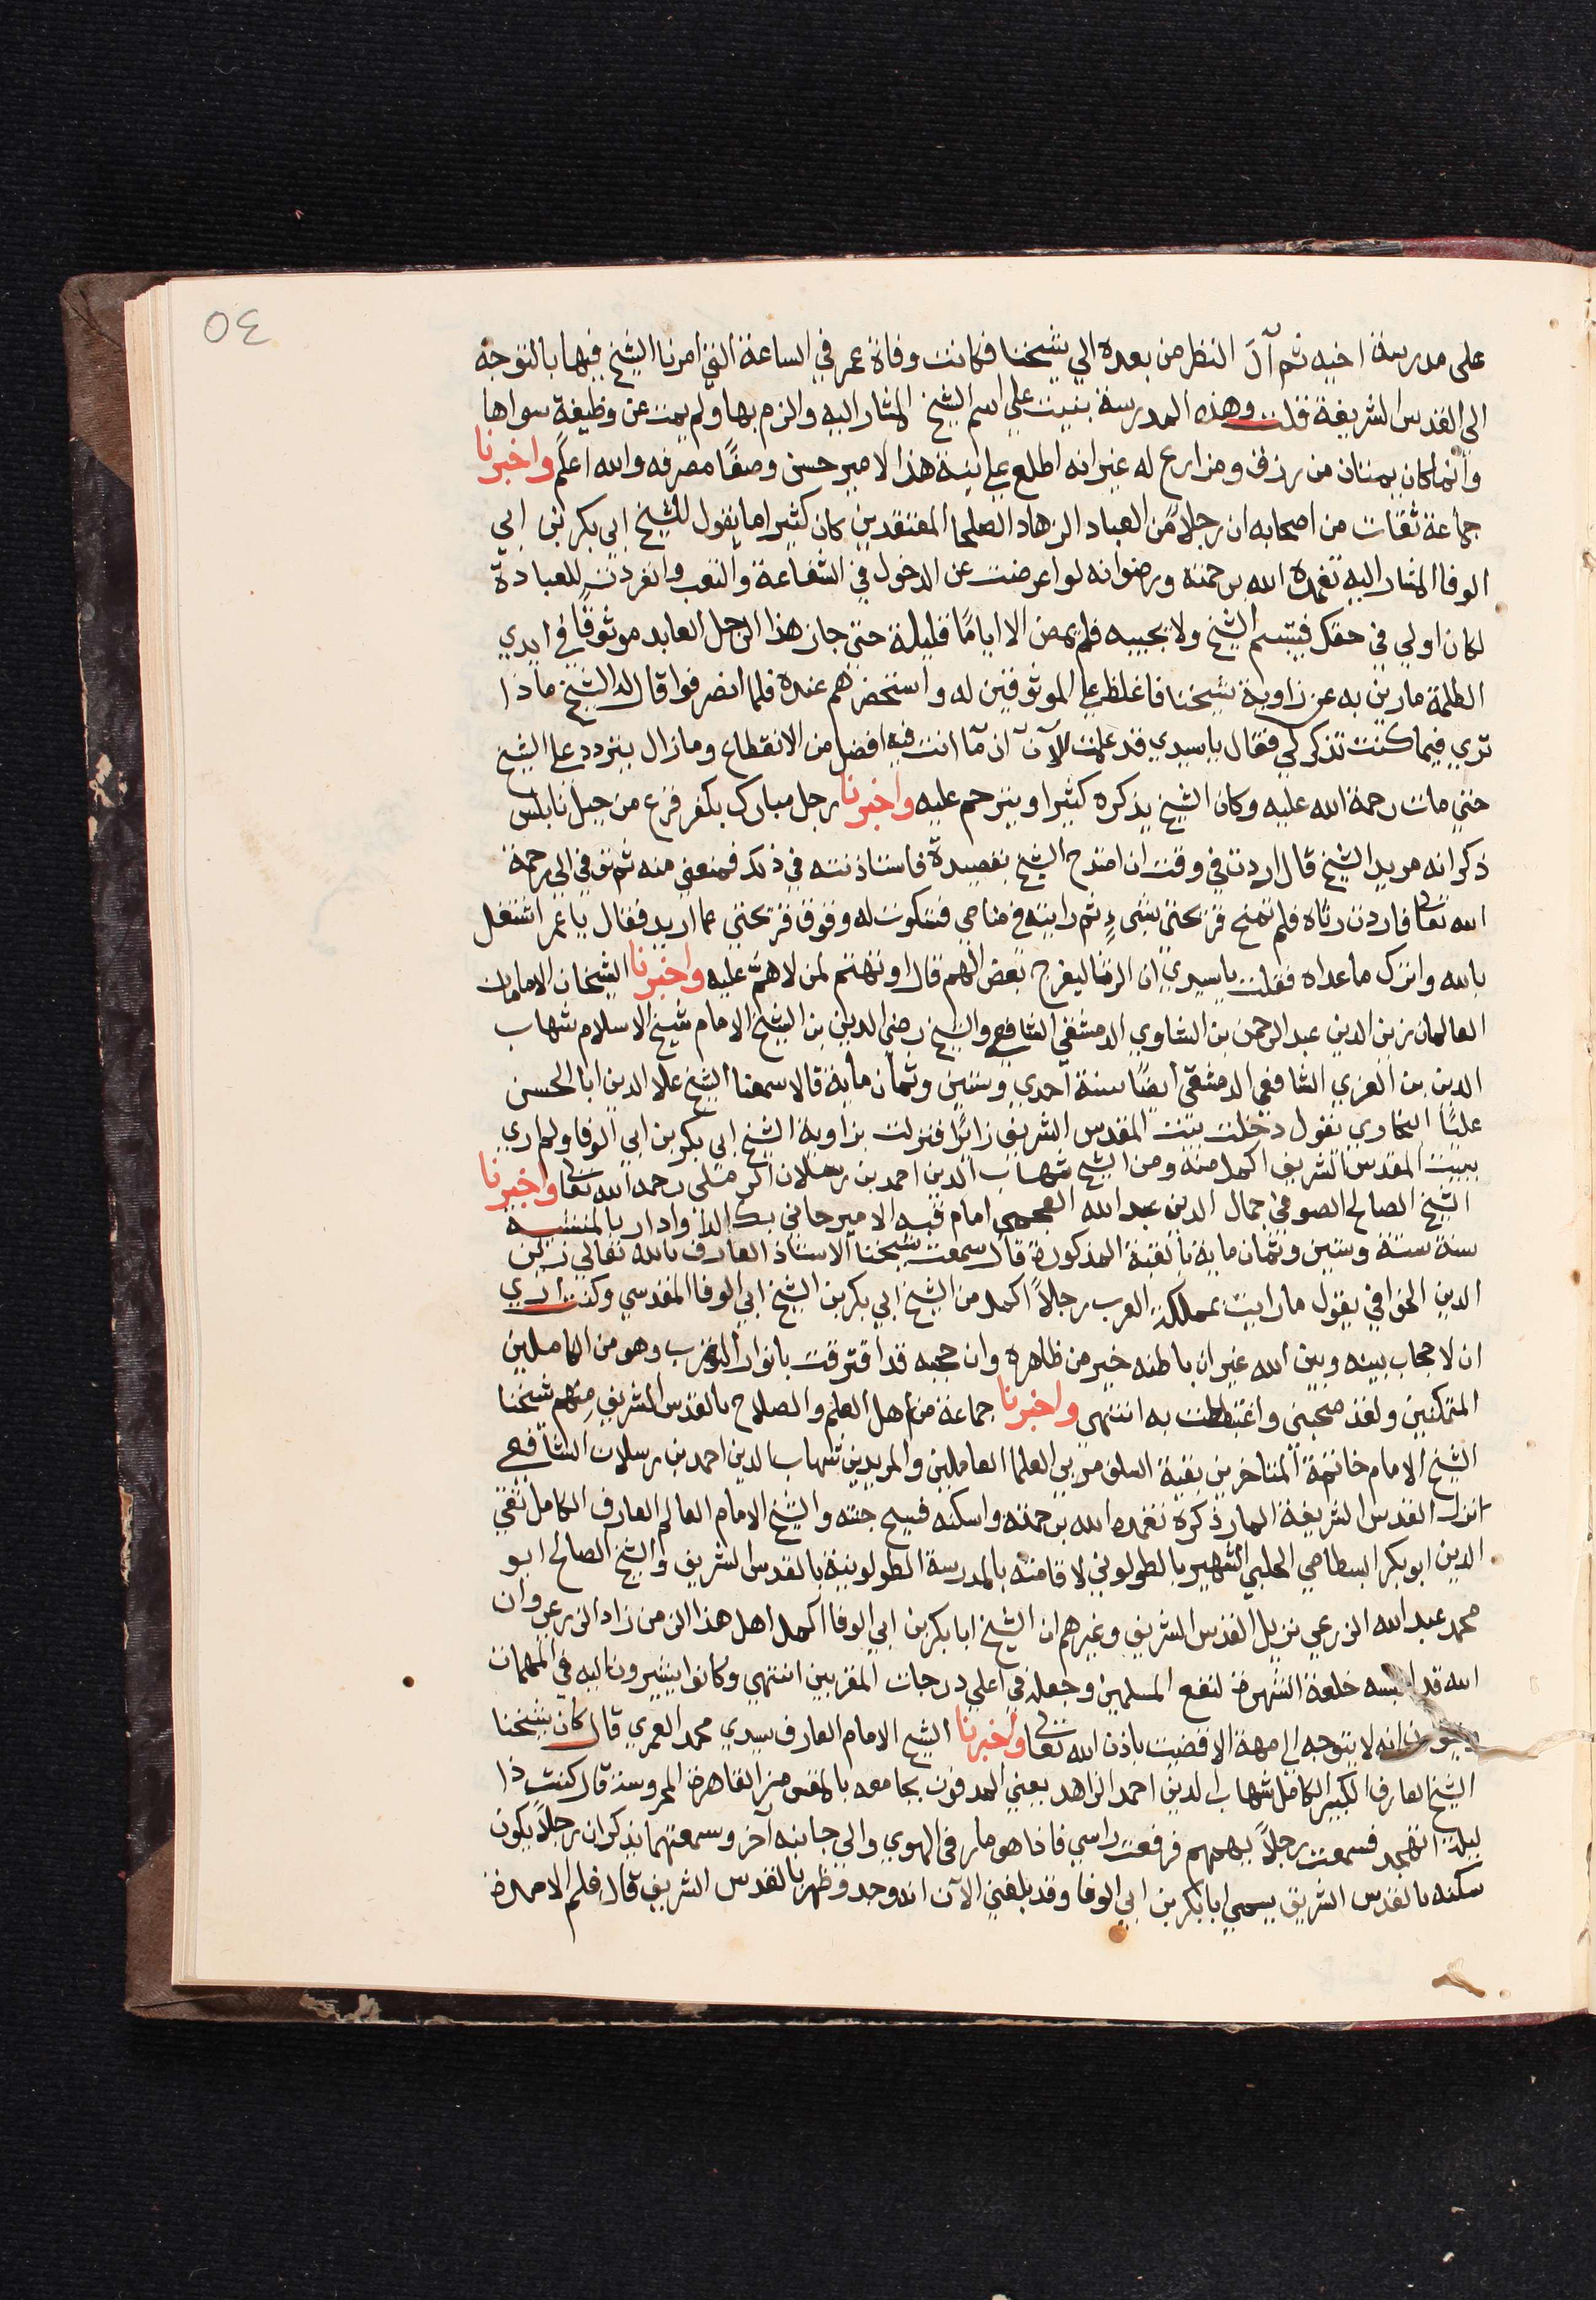 ٥٤
على مدرسة اخيه ثم آلَ النظر من بعده الي شيخنا فكانت وفاة عمر في الساعة التي امرنا الشيخ فيها بالتوجه
الي القدس الشريفة قلت وهذه المدرسة بنيت علي اسم الشيخ المشار اليه والزم بها ولم يمت عن وظيفة سواها
وانما كان يمتنان من رزق ومزارع له غير انه اطلع علي نية هذا الامير حسن وصفًا مصرفه والله اعلم واخبرنا
جماعة ثقات من اصحابه ان رجلا من العباد الزهاد الصلحا المعتقدين كان كثيرا ما يقول للشيخ ابي بكر بن ابي
الوفا المشار اليه تغمده الله برحمته ورضوانه لو اعرضت عن الدخول في الشفاعة والتعب وانفردت للعبادة
لكان اولي في حقك فيتبسم الشيخ ولا يجيبه فلم يمض الا ايامًا قليلة حتي جاز هذا الرجل العابد موثوقًا في ايدي
الظلمة مارين به عن زاوية شيخنا فاغلظ علي الموثوقين له واستحضرهم عنده فلما انصرفوا قال له الشيخ ماذا
تري فيما كنت تذكر لي فقال يا سيدي قد علمت الآن ان ما انت فيه افضل من الانقطاع وما زال يتردد علي الشيخ
حتي مات رحمة الله عليه وكان الشيخ يذكره كثيرا ويترحم عليه واخبرنا رجل مبارك بكفر قرع من جبل نابلس
ذكر انه مريد الشيخ قال اردت في وقت ان امتدح الشيخ بقصيدة فاستاذنته في ذلك فمنعني منه ثم توفي الي رحمة
الله تعالى فاردت رثاه فلم تمنح قريحتي بشيءٍ ثم رايته في منامي فشكوت له وقوف قريحتي عما اريد فقال يا عمر اشتغل
بالله واترك ما عداه فقلت يا سيدي ان الرثا ليفرج بعض الهم قال او تهتم لمن لا هم عليه واخبرنا الشيخان الامامان
العالمان زين الدين عبد الرحمن بن الشاوي الدمشقي الشافعي والشيخ رضي الدين بن الشيخ الامام شيخ الاسلام شهاب
الدين بن الغزي الشافعي الدمشقي ايضًا سنة احدي وستين وثمان مأية قالا سمعنا الشيخ علا الدين ابا الحسن
عليًا البخاري يقول دخلت بيت المقدس الشريف زائرًا فنزلت بزاوية الشيخ ابي بكر بن ابي الوفا ولم اري
ببيت المقدس الشريف اكمل منه ومن الشيخ شهاب الدين احمد بن رسلان الرملي رحمه الله تعالى واخبرنا
الشيخ الصالح الصوفي جمال الدين عبد الله العجمي امام قبه الامير جاني بك الدوادار بالمنشية
سنة ستة وستين وثمان ماية بالقبة المذكورة قال سمعت شيخنا الاستاذ العارف بالله تعالي زين
الدين الخوافي يقول ما رايت بمملكة العرب رجلاً اكمل من الشيخ ابي بكر بن الشيخ ابي الوفا المقدسي وكنت اري
ان لا حجاب بينه وبين الله غير ان باطنه خير من ظاهره وان حجبه قد اقترقت بانوار القرب وهو من الكاملين
المتمكنين ولقد صحبني واغتبطت به انتهي واخبرنا جماعة من اهل العلم والصلاح بالقدس الشريف منهم شيخنا
الشيخ الامام خاتمة المتاخرين بقية السلف مربي العلما العاملين والمريدين شهاب الدين احمد بن رسلان الشافعي
انزل القدس الشريفة المار ذكره تغمده الله برحمته واسكنه فسيح جنته والشيخ الامام العالم العارف الكامل تقي
الدين ابو بكر البسطامي الحلبي الشهير بالطولوني لاقامته بالمدرسة الطولونية بالقدس الشريف والشيخ الصالح ابو
محمد عبد الله الزرعي نزيل القدس الشريف وغيرهم ان الشيخ ابا بكر بن ابي الوفا اكمل اهل هذا الزمن زاد الزرعي وان
الله قد البسه خلعة الشهرة لنفع المسلمين وجعله في اعلي درجات المقربين انتهي وكانوا يشيرون اليه في المهمات
ويقولون انه لا يتوجه الي مهمة الا قضيت باذن الله تعالى واخبرنا الشيخ الامام العارف سيدي محمد الغمري قال كان شيخنا
الشيخ العارف الكبير الكامل شهاب الدين احمد الزاهد يعني المدفون بجامعه بالمقس من القاهرة المحروسة قال كنت ذا
ليلة اتهجد فسمعت رجلاً يهمهم فرفعت راسي فاذا هو مار في الهوي والي جانبه آخر وسمعتهما يذكران رجلاً يكون
سكنه بالقدس الشريف يسمي ابا بكر بن ابي الوفا وقد بلغني الآن انه وجد وظهر بالقدس الشريف قال فلم الا مدة